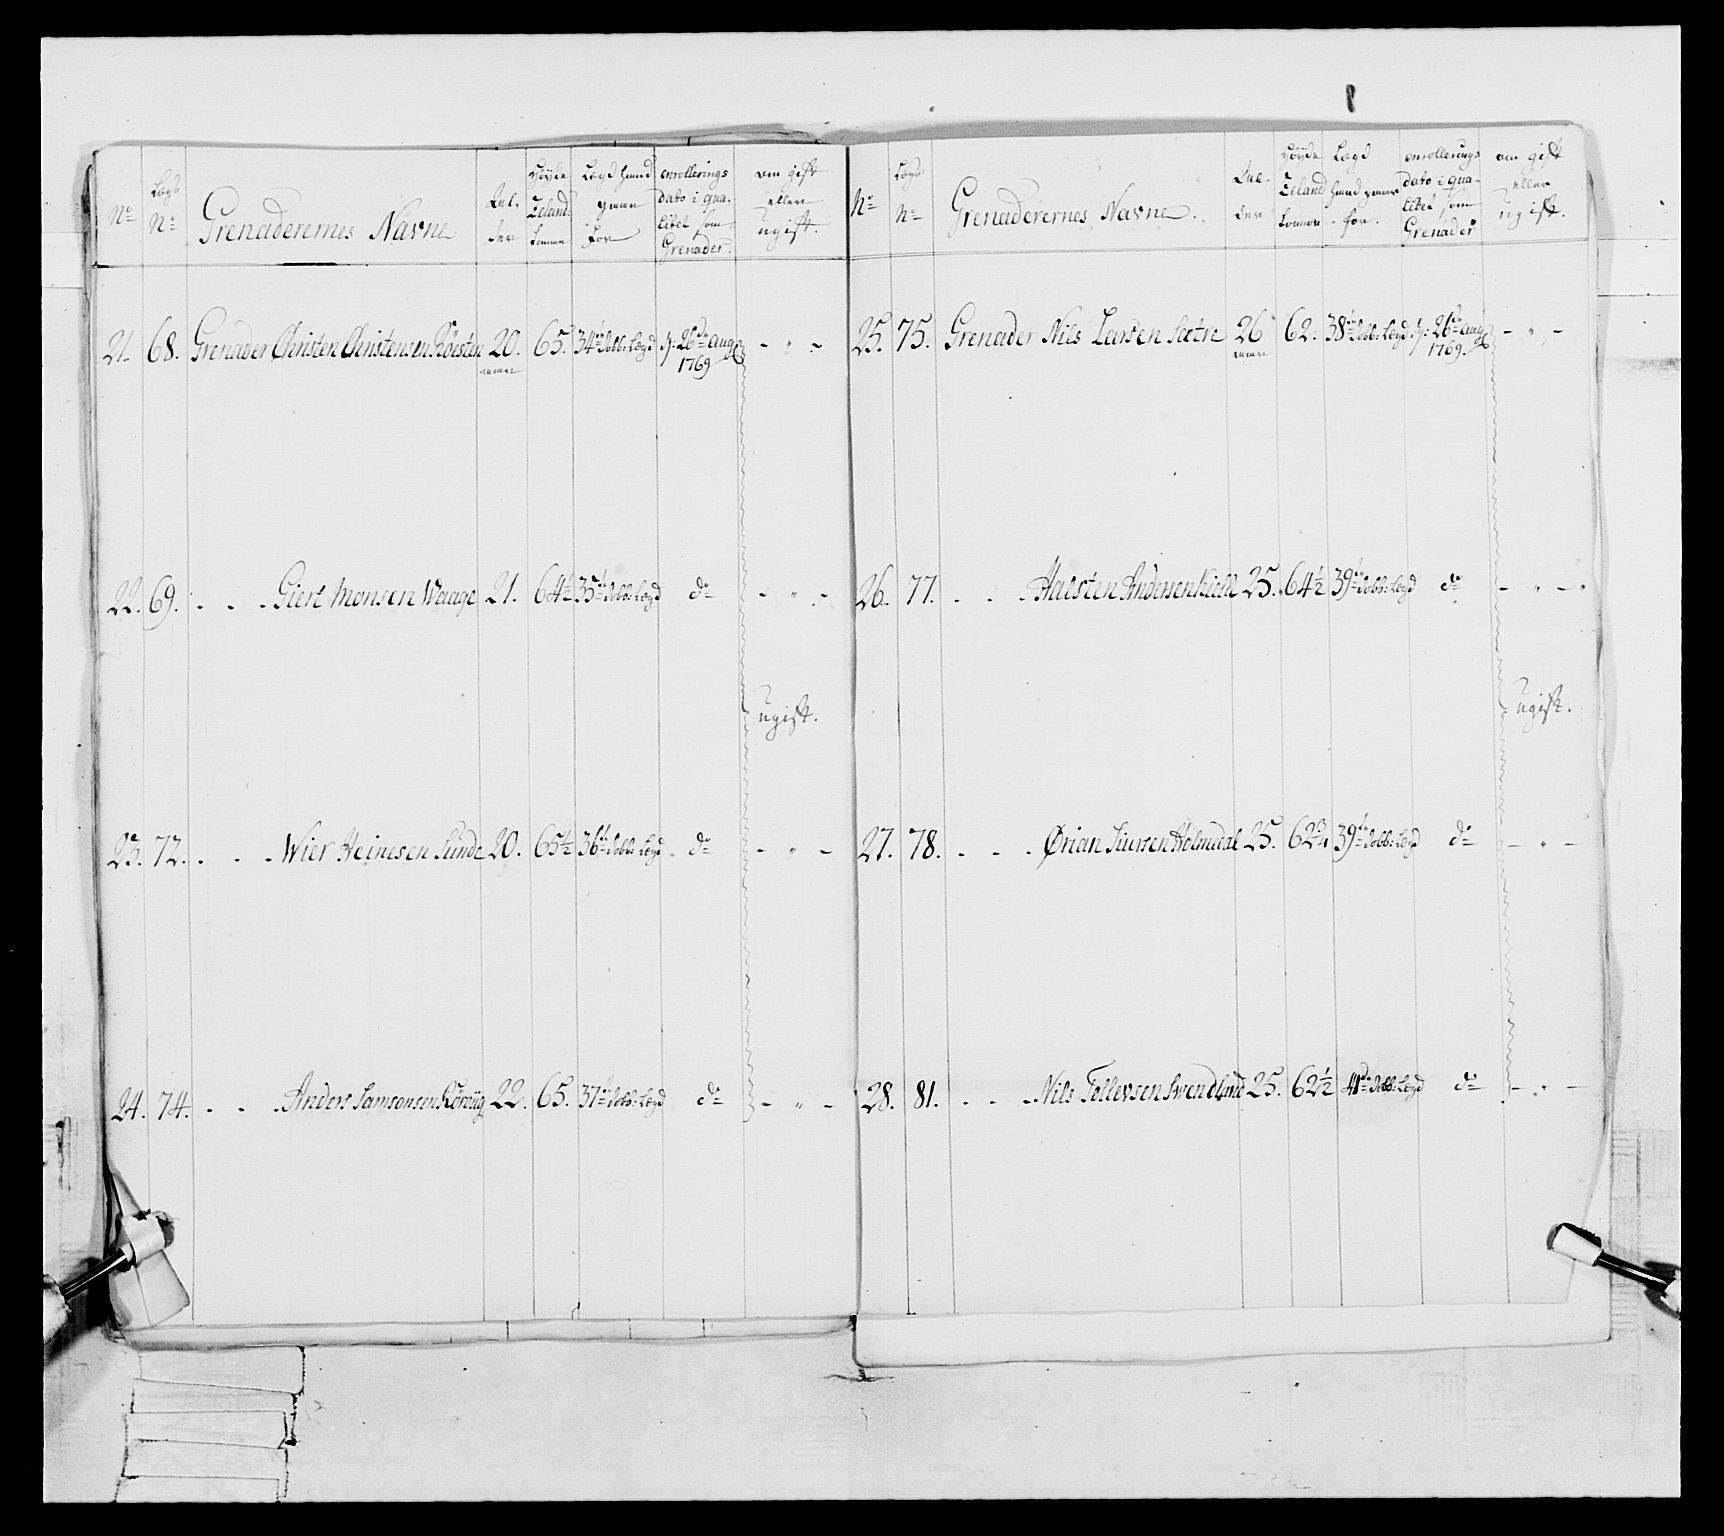 No
Lægs No
Grenaderernes Navne
Alder
Høyde Zeland: komme
Lægd hand gaar for
enrollerings dato i qualitet som Grenader.
om gift eller ugift.
21. 68. Grenader Christen Christensen Röesten 20. 65. 34te dobb: Lægd d: 26de Aug 1769 - " -
22. 69. - - - Giert Monsen Waage 21. 64½ 35te dobb: Lægd do - " -
ugift.
23. 72. - - - Wier Heinesen Sunde 20. 65½ 36te dobb: Lægd do - " -
24. 74. - - - Anders Samsonsen Röröüg 22. 65. 37te dobb: Lægd do - " -
No
Lægs No
Grenaderernes Navne.
Alder
Høyde Zeland komme
Lægd hand gaar for.
enrollerings dato i qualitet som Grenader
om gift eller ugift.
25. 75. Grenader Nils Larsen Sætre 26 62. 38te dobb: Lægd d: 26de Aug 1769. - " -
26. 77. - - - Halsten Andersen Kielde 25. 64½ 39te dobb: Lægd do - " -
ugift.
27. 78. - - - Ørian Siursen Holmedal 25. 62¾ 39te dobb: Lægd do - " -
28. 81. - - - Nils Tollevsen Svendland 25. 62½ 41de dobb: Lægd do - " -